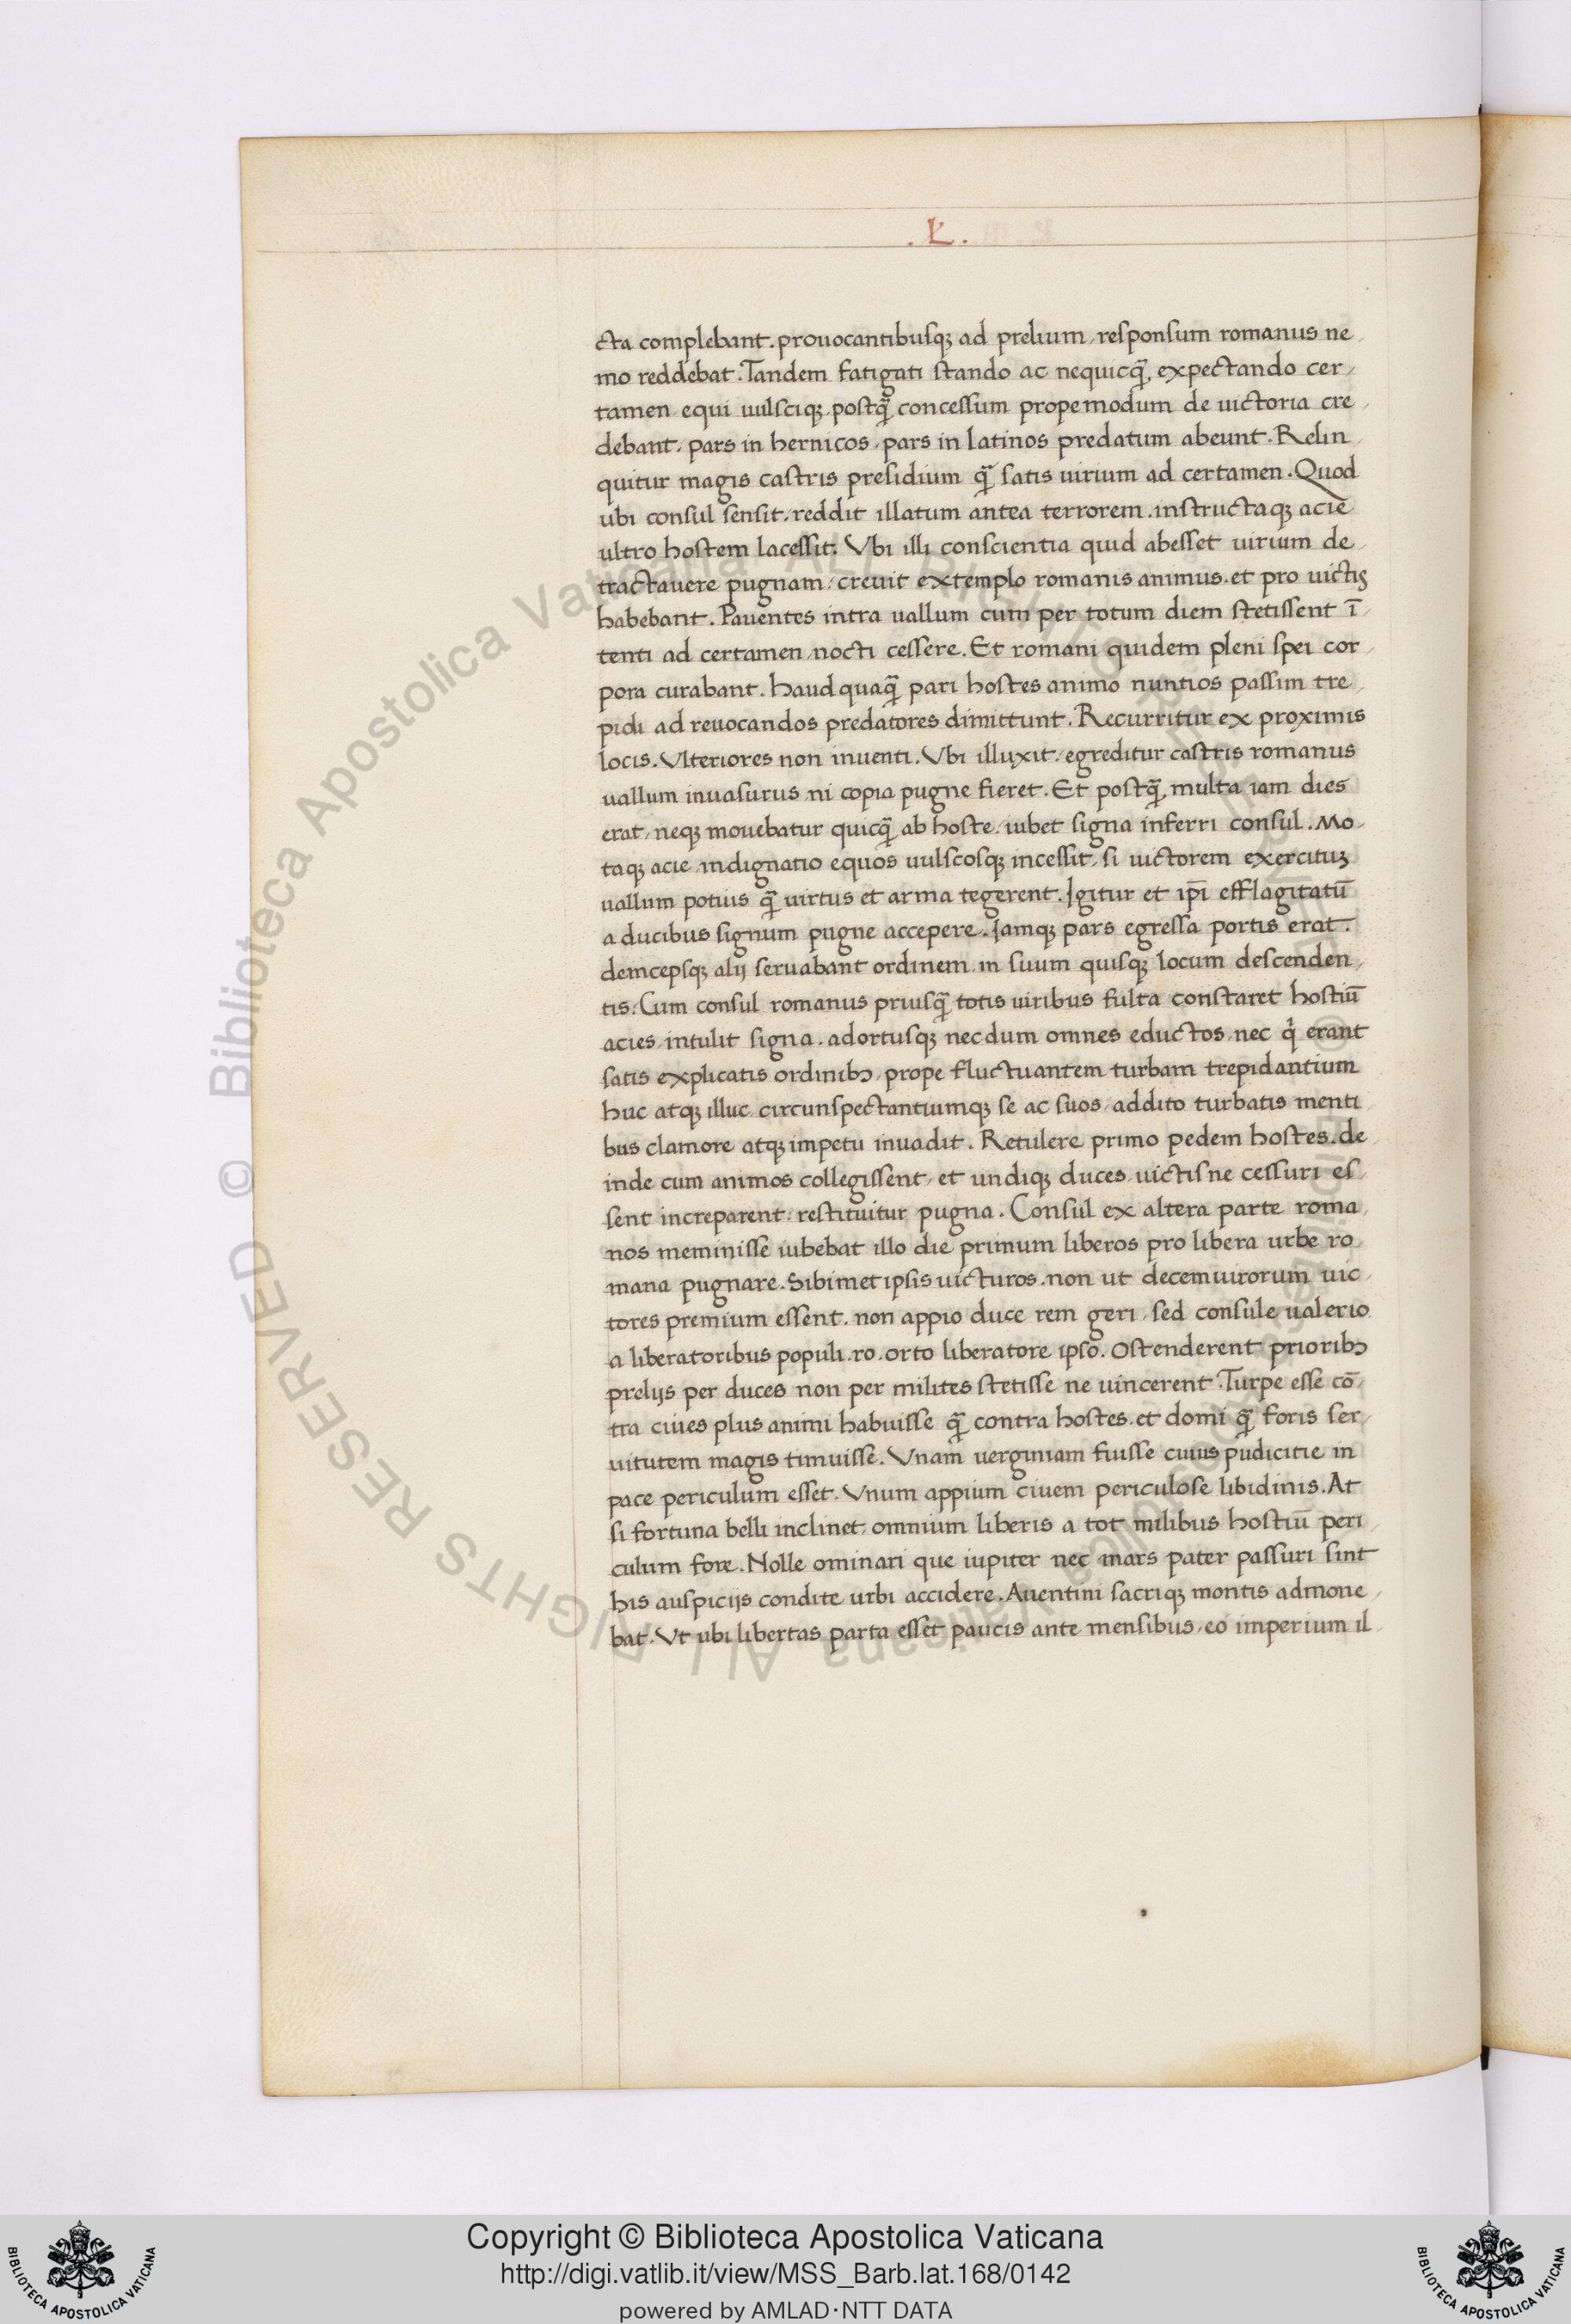 .L.
cta complebant. prouocantibusq; ad prelium, responsum romanus ne
mo reddebat. Tandem fatigati stando ac nequicq̃, expectando cer
tamen equi uulsciq; postq̃ concessum propemodum de uictoria cre
debant, pars in hernicos, pars in latinos predatum abeunt. Relin
quitur magis castris presidium q̃ satis uirium ad certamen. Quod
ubi consul sensit, reddit illatum antea terrorem. instructaq; acie
ultro hostem lacessit. Vbi illi conscientia quid abesset uirium de
tractauere pugnam, creuit extemplo romanis animus. et pro uictis
habebant. Pauentes intra uallum cum per totum diem stetissent ī
tenti ad certamen, nocti cessere. Et romani quidem pleni spei cor
pora curabant. haud quaq̃ pari hostes animo nuntios passim tre
pidi ad reuocandos predatores dimittunt. Recurritur ex proximis
locis. Vlteriores non inuenti. Vbi illuxit, egreditur castris romanus
uallum inuasurus ni copia pugne fieret. Et postq̃, multa iam dies
erat, neq; mouebatur quicq̃ ab hoste, iubet signa inferri consul. Mo
taq; acie indignatio equos uulscosq; incessit, si uictorem exercituz
uallum potius q̃ uirtus et arma tegerent. Igitur et ip̄i efflagitatū
a ducibus signum pugne accepere. Iamq; pars egressa portis erat.
deincepsq; alij seruabant ordinem in suum quisq; locum descenden
tis. Cum consul romanus priusq̃ totis uiribus fulta constaret hostiū
acies, intulit signa. adortusq; necdum omnes eductos, nec q̇ erant
satis explicatis ordinibꝫ, prope fluctuantem turbam trepidantium
huc atq; illuc circunspectantiumq; se ac suos, addito turbatis menti
bus clamore atq; impetu inuadit. Retulere primo pedem hostes. de
inde cum animos collegissent, et undiq; duces uictisne cessuri es
sent increparent, restituitur pugna. Consul ex altera parte roma
nos meminisse iubebat illo die primum liberos pro libera urbe ro
mana pugnare. Sibimet ipsis uicturos. non ut decemuirorum uic
tores premium essent. non appio duce rem geri, sed consule ualerio
a liberatoribus populi. ro. orto liberatore ipso. Ostenderent prioribꝫ
prelijs per duces non per milites stetisse ne uincerent. Turpe esse cō
tra ciues plus animi habuisse q̃ contra hostes. et domi q̃ foris ser
uitutem magis timuisse. Vnam uerginiam fuisse cuius pudicitie in
pace periculum esset. Vnum appium ciuem periculose libidinis. At
si fortuna belli inclinet, omnium liberis a tot milibus hostiū peri
culum fore. Nolle ominari que iupiter nec mars pater passuri sint
his auspicijs condite urbi accidere. Auentini sacriq; montis admone
bat. Vt ubi libertas parta esset paucis ante mensibus, eo imperium il
© Biblioteca Apostolica Vaticana ALL RIGHTS RESERVED
© Biblioteca Apostolica Vaticana ALL RIGHTS RESERVED
BIBLIOTECA APOSTOLICA VATICANA
Copyright © Biblioteca Apostolica Vaticana
http://digi.vatlib.it/view/MSS_Barb.lat.168/0142
powered by AMLAD·NTT DATA
BIBLIOTECA APOSTOLICA VATICANA